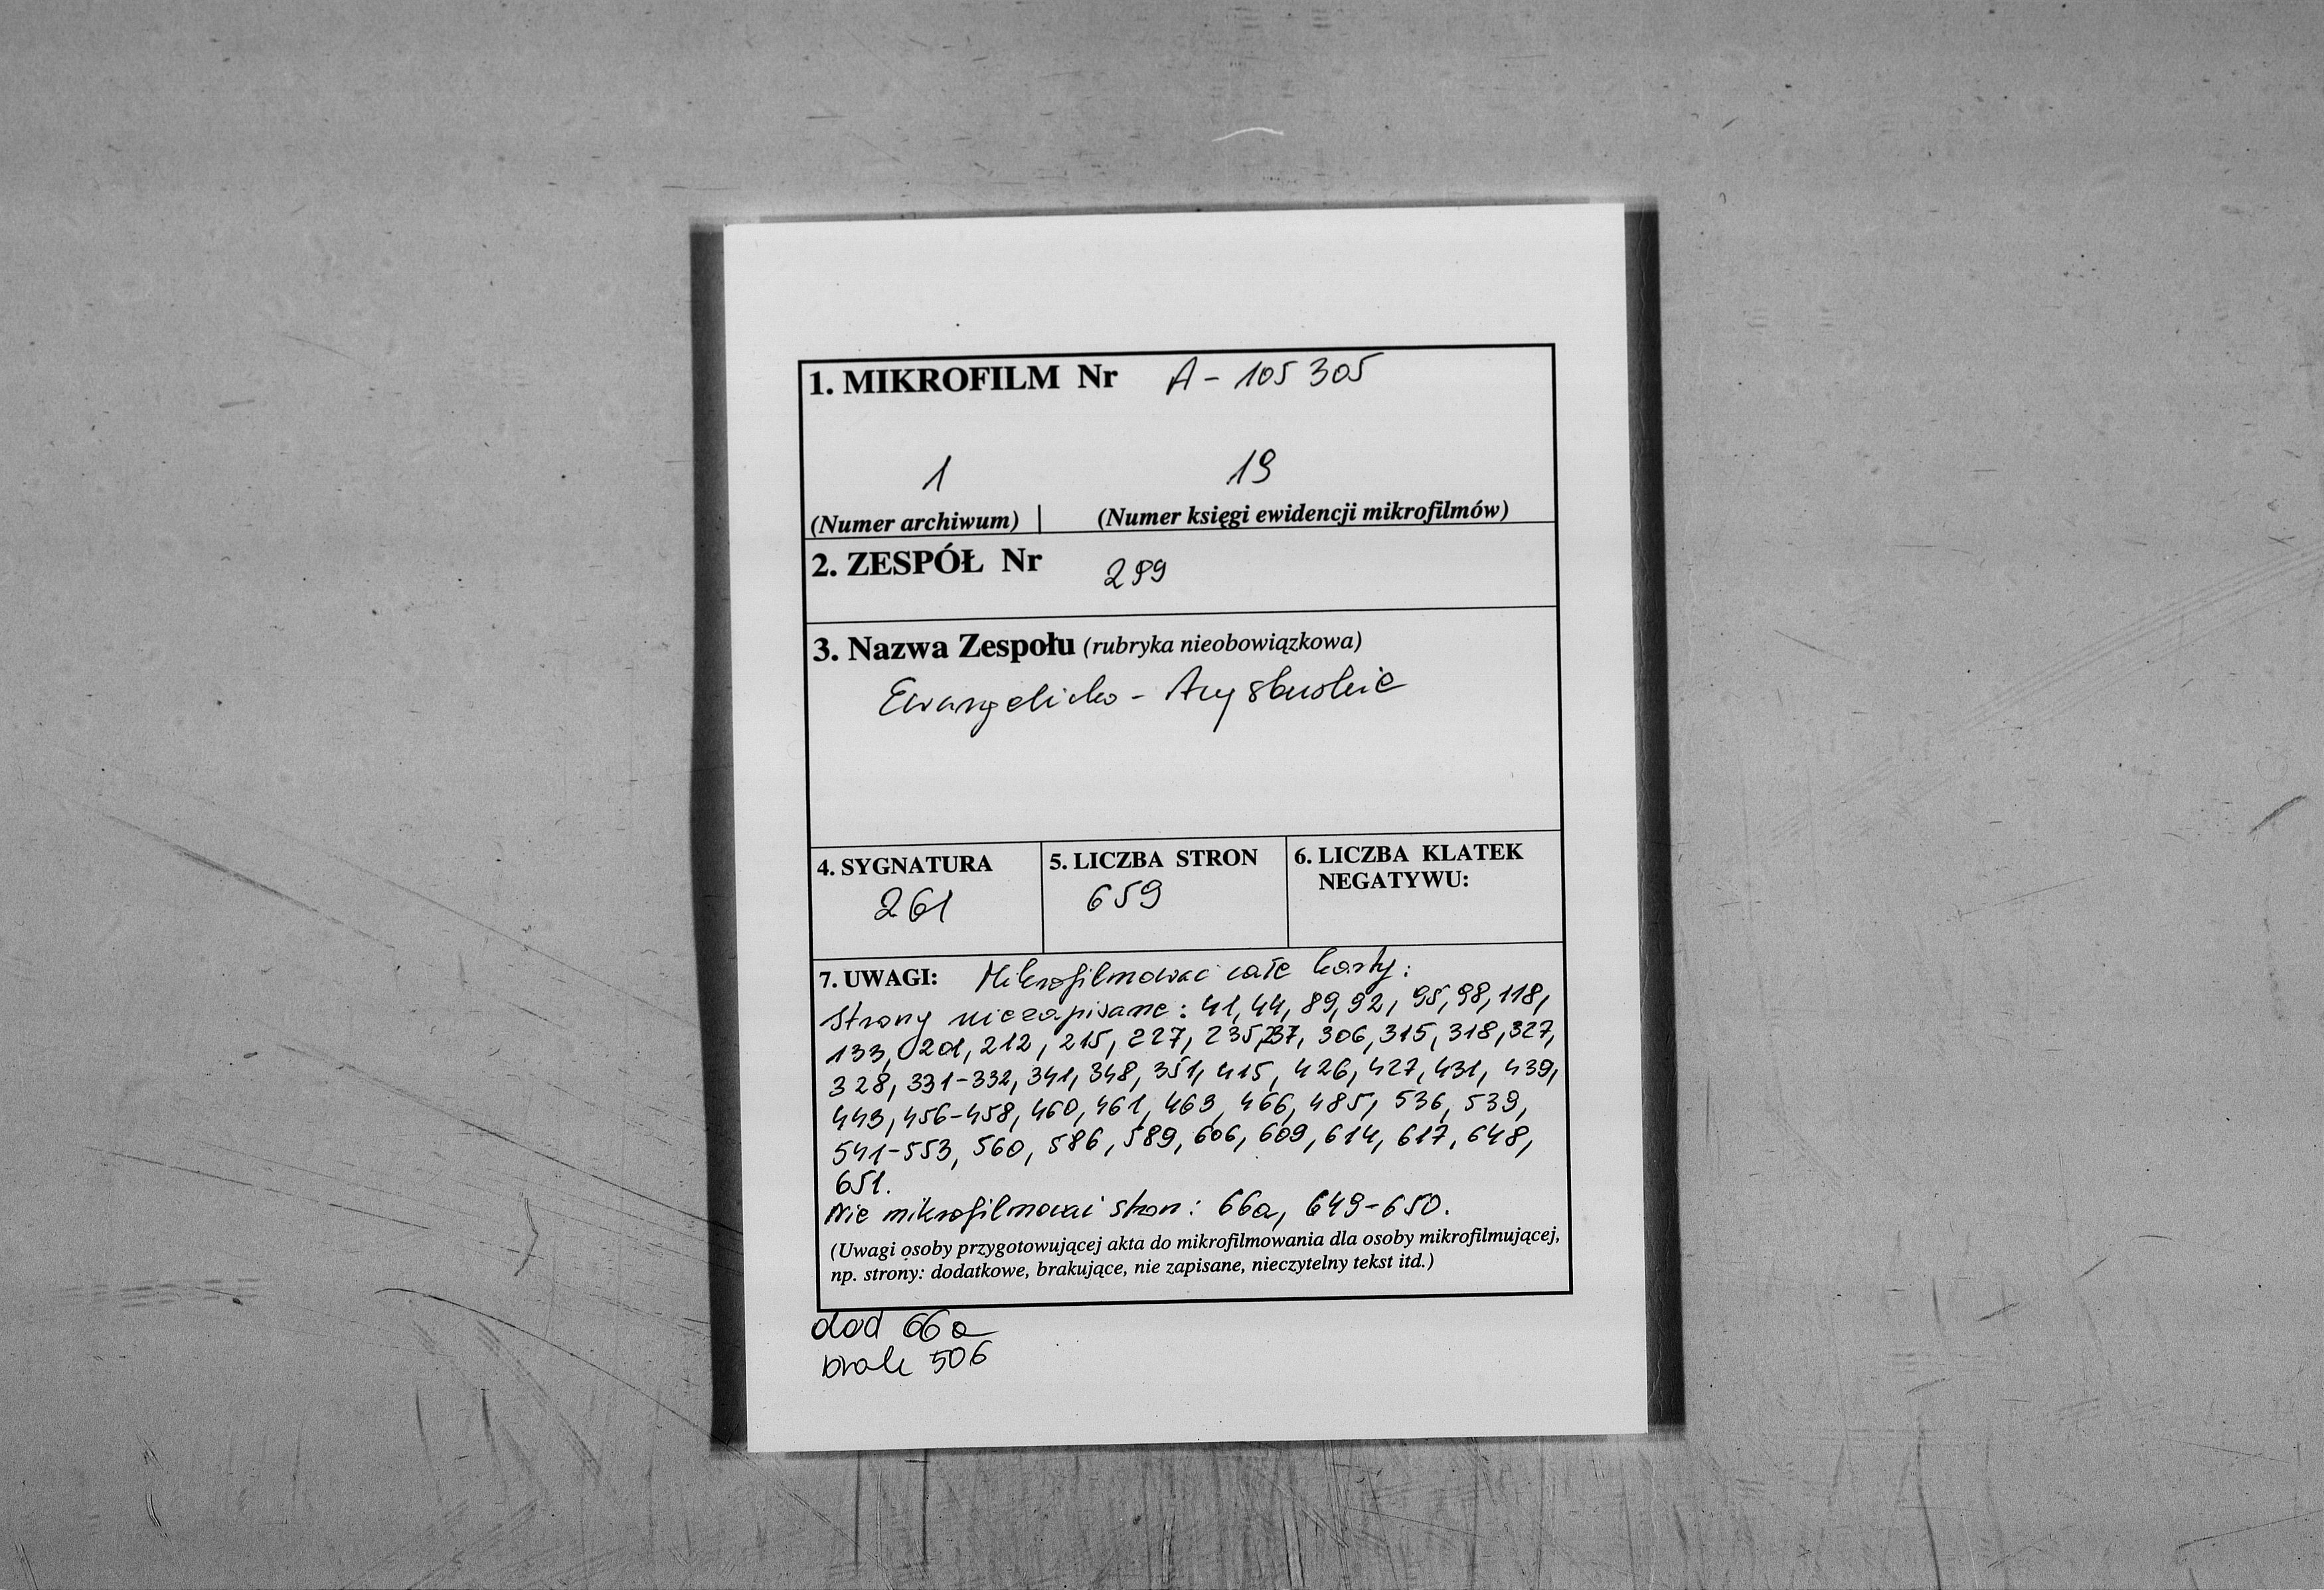 1. MIKROFILM Nr A - 105 305
1 19
(Numer archiwum) | (Numer księgi ewidencji mikrofilmów)
2. ZESPÓŁ Nr 299
3. Nazwa Zespołu (rubryka nieobowiązkowa)
Ewangelicko - Augsburskie
4. SYGNATURA 5. LICZBA STRON 6. LICZBA KLATEK
NEGATYWU:
261 659
7. UWAGI: Mikrofilmować całe karty:
Strony niezapisane: 41, 44, 89, 92, 95, 98, 118,
133, 201, 212, 215, 227, 235, 237, 306, 315, 318, 327,
328, 331-332, 341, 348, 351, 415, 426, 427, 431, 439,
443, 456-458, 460, 461, 463, 466, 485, 536, 539,
541-553, 560, 586, 589, 606, 609, 614, 617, 648,
651.
Nie mikrofilmować stron: 66a, 649-650.
(Uwagi osoby przygotowującej akta do mikrofilmowania dla osoby mikrofilmującej,
np. strony: dodatkowe, brakujące, nie zapisane, nieczytelny tekst itd.)
dod 66a
brak 506